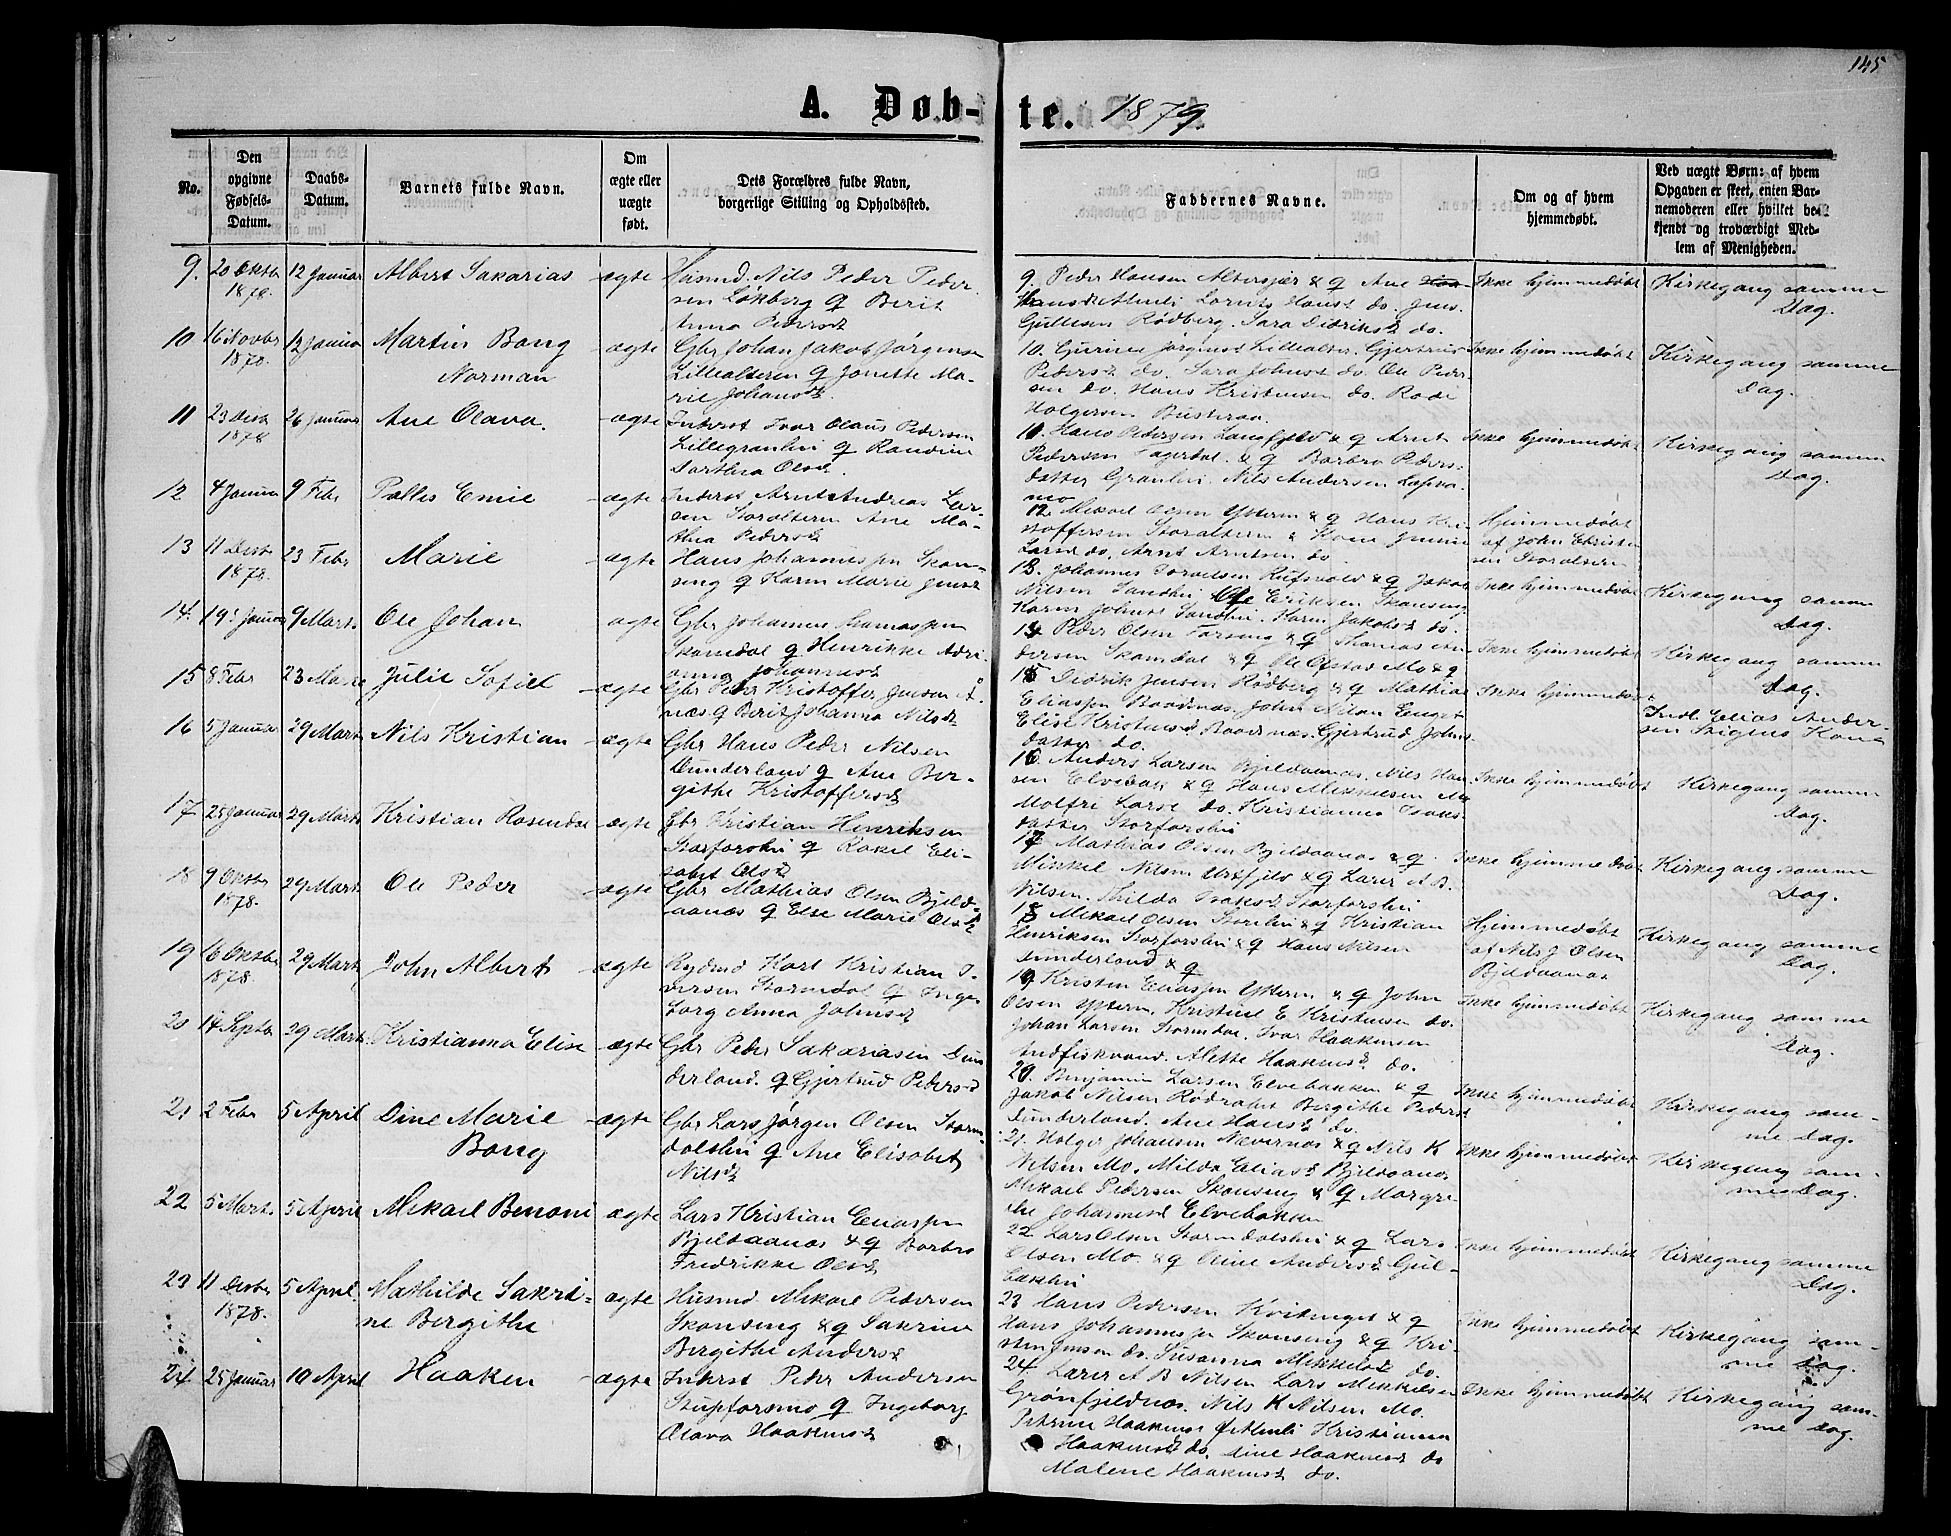 145
A. Døb-te. 1879.
No.
Den opgivne Fødsels-Datum.
Daabs-Datum.
Barnets fulde Navn.
Om ægte eller uægte født.
Dets Forældres fulde Navn, borgerlige Stilling og Opholdssted.
Faddernes Navne.
Om og af hvem hjemmedøbt.
Ved uægte Børn: af hvem Opgaven er skeet, enten Barnemoderen eller hvilket bekjendt og troværdigt Medlem af Menigheden.
9. 20 Oktbr 1878. 12 Januar Albert Sakarias ægte Husmd. Nils Peder Peder-
sen Løkberg & Berit
Anna Pedersd
9. Peder Hansen Altersjær & & Ane
Hansd Lorntz Hansd do. Jens
Gullesen Rødberg. Sara Didriksd do.
Ikke hjemmedøbt Kirkegang samme
Dag.
10 16 Novbr 1878. 12 Januar Martin Bang
Norman
ægte Gbr Johan Jakob Jørgensen
Lillealteren & Jonette Ma-
rie Johansd.
10. Jørgensd Lillealter. Gjertrud
Pedersd do. Sara Johnsd do. Ole Peder-
sen do. Hans Kristensen do.
Holgersen
Ikke hjemmedøbt Kirkegang samme
Dag.
11 23 Desbr 1878 26 Januar Ane Olava. ægte Inderst Ivar Olaus Pedersen
Lillegranlien & Randine
Dorthea Olsd.
11. Hans Pedersen & & Arnt
Pedersen & & Barbro Peders-
datter Granlien. Nils Andersen
mo
Ikke hjemmedøbt Kirkegang samme
Dag.
12 4 Januar 9 Febr Emil ægte Inderst Arnt Andreas Lar-
sen Storalteren Ane Ma-
thea Pedersd
12. Mikael Olsen Yttern & & Hans Kri-
stoffersen Storalteren & Kone
Larsd do. Arnt Arntsen do
Hjemmedøbt
af John Christen-
sen Storalteren
13 11 Desbr 1878. 23 Febr Marie ægte Hans Johannessen Skon-
seng & Karen Marie Jensd
13. Johannes & & Jakob
Nilsen Sandhei Ole Eriksen Skonseng
Karen Johnsd Sandhei. Karen Jakobsd do.
Ikke hjemmedøbt Kirkegang samme
Dag.
14. 19. Januar 9 Marts. Ole Johan ægte Gbr Johannes Thomassen
Skamdal & Henrikke Adri-
anna Johannesd
14 Peder Olsen & & Thomas An-
dersen Skamdal & & Ole Ofstad Mo & &
Ikke hjemmedøbt Kirkegang samme
Dag.
15 8 Febr 23 Marts Julie Sofie ægte Gbr Peder Kristoffer Jensen Å-
næs & Berit Johanna Nilsd
15 Didrik Jensen Rødberg & & Mathias
Eliassen John Nilsen Enget
Elise Kristensd Gjertrud Johns-
datter do.
Ikke hjemmedøbt Indl. Elias Ander-
sen Kone
16 5 Januar 29 Marts Nils Kristian ægte Gbr Hans Peder Nilsen
Dunderland & Ane Ber-
githe Kristoffersd
16 Anders Larsen Bjeldaanæs. Nils Han-
sen Elvebak & & Hans Mikkelsen Mo
Molfri Larsd do. Kristianna Isaks-
datter Storforshei
Ikke hjemmedøbt Kirkegang samme
Dag.
17 25 Januar 29 Marts Kristian Rosendal ægte Gbr Kristian Henriksen
Storforshei & Rakel Eli-
sabet Olsd
17 Mathias Olsen Bjeldaanæs & &
Mikkel Nilsen Urtfjeld & & Lærer A. B.
Nilsen. Thilda Isaksd Storforshei
Ikke hjemmedøbt Kirkegang samme
Dag.
18 9 Oktbr 1878. 29 Marts Ole Peder ægte Gbr Mathias Olsen Bjeld-
aanæs & Else Marie Olsd
18 Mikael Olsen Storlien & & Kristian
Henriksen Storforshei & & Hans Nilsen
Dunderland & &
Hjemmedøbt
af Nils J Olsen
Bjeldaanæs
Kirkegang samme
Dag.
19 16 Oktbr 1878. 29 Marts John Albert ægte Rydmd Karl Kristian I-
versen Stormdal & Inge-
borg Anna Johnsd
19 Kristen Eliassen Yttern & & John
Olsen Yttern. Kristine E Kristensen do.
Johan Larsen Stormdal. Ivar Haakensen
Alette Haakensd. do.
Ikke hjemmedøbt Kirkegang samme
Dag.
20 14 Septbr 29 Marts. Kristianna Elise ægte Gbr Peder Sakariasen Dun-
derland. & Gjertrud Pedersd
20. Benjamin Larsen Elvebakken & &
Jakob Nilsen Bergithe Pedersd
Dunderland. Ane Hansd do.
Ikke hjemmedøbt Kirkegang sam-
me Dag.
21 2 Febr 5 April Dine Marie
Bang
ægte Gbr Lars Jørgen Olsen Storm-
dalshei & Ane Elisabet
Nilsd
21. Holger Johansen Nævernæs & & Nils K
Nilsen Mo. Milda Eliasd Bjeldaanæs
Mikael Pedersen Skonseng & & Margre-
the Johannesd Elvebakken
Ikke hjemmedøbt Kirkegang sam-
me Dag.
22 5 Marts. 5 April Mikael Benoni ægte Lars Kristian Eliassen
Bjeldaanæs & & Barbro
Fredrikke Olsd
22 Lars Olsen Stormdalshei & & Lars
Olsen Mo. & & Oline Andersd Gul-
Ikke hjemmedøbt Kirkegang samme
Dag.
23 11 Desbr 1878. 5 April. Mathilde Sakri-
ne Bergithe
ægte Husmd. Mikael Pedersen
Skonseng & & Sakrine
Bergithe Andersd
23 Hans Pedersen & &
Hans Johannessen Skonseng & & Kri-
sten Jensen do. Susanna Mikkelsd do.
Ikke hjemmedøbt Kirkegang sam-
me Dag.
24 25 Januar 10 April Haaken ægte Inderst Peder Andersen
Stupforsmo & Ingeborg
Olava Haakensd
24. Lærer A B Nilsen Lars Mikkelsen
Grønfjeldnæs. Nils K Nilsen Mo.
Petrine Haakensd Kristianna
Haakensd do. Dine Haakensd do
Malene Haakensd do.
Ikke hjemmedøbt Kirkegang sam-
me Dag.